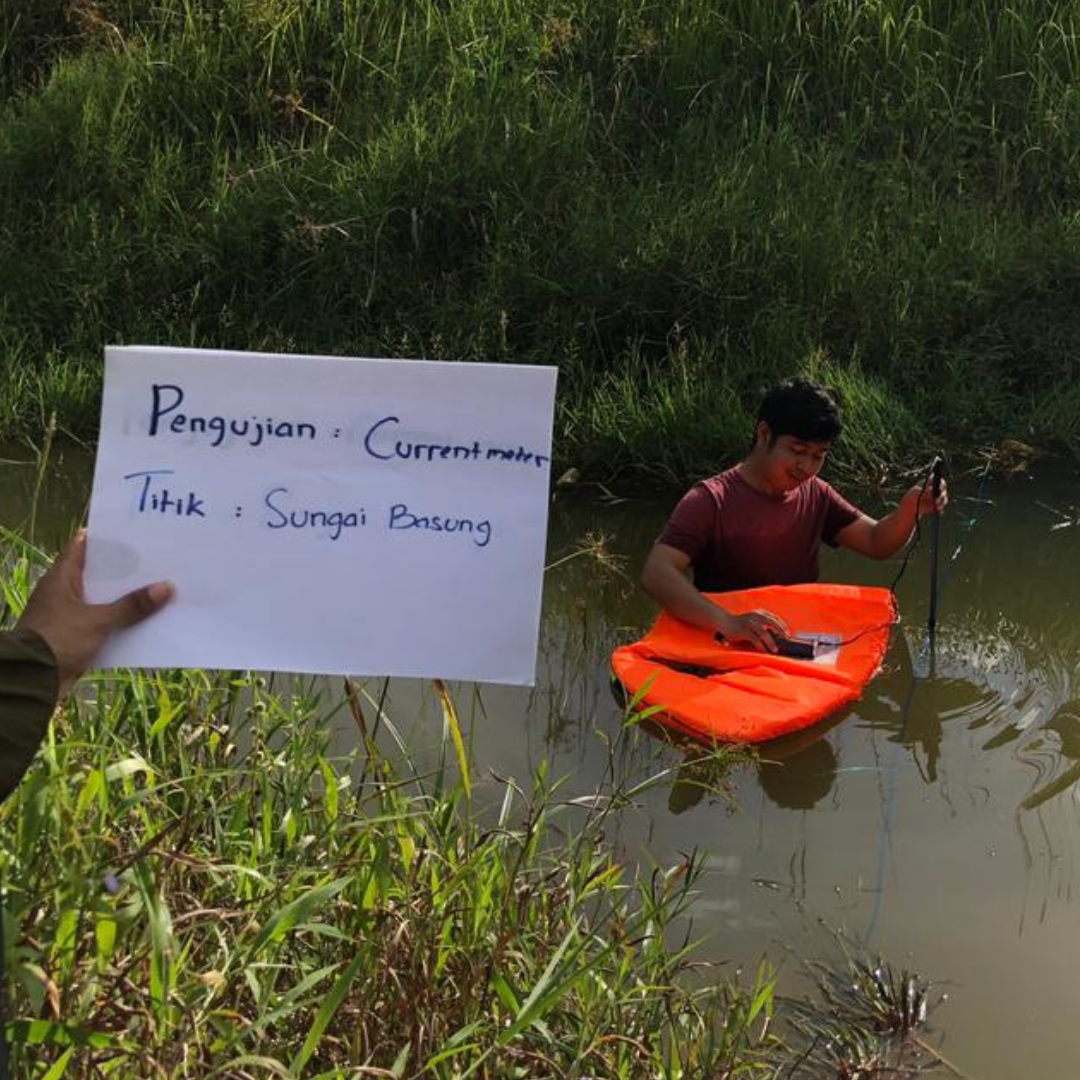 Pengujian : Currentmeter
Titik : Sungai Basung